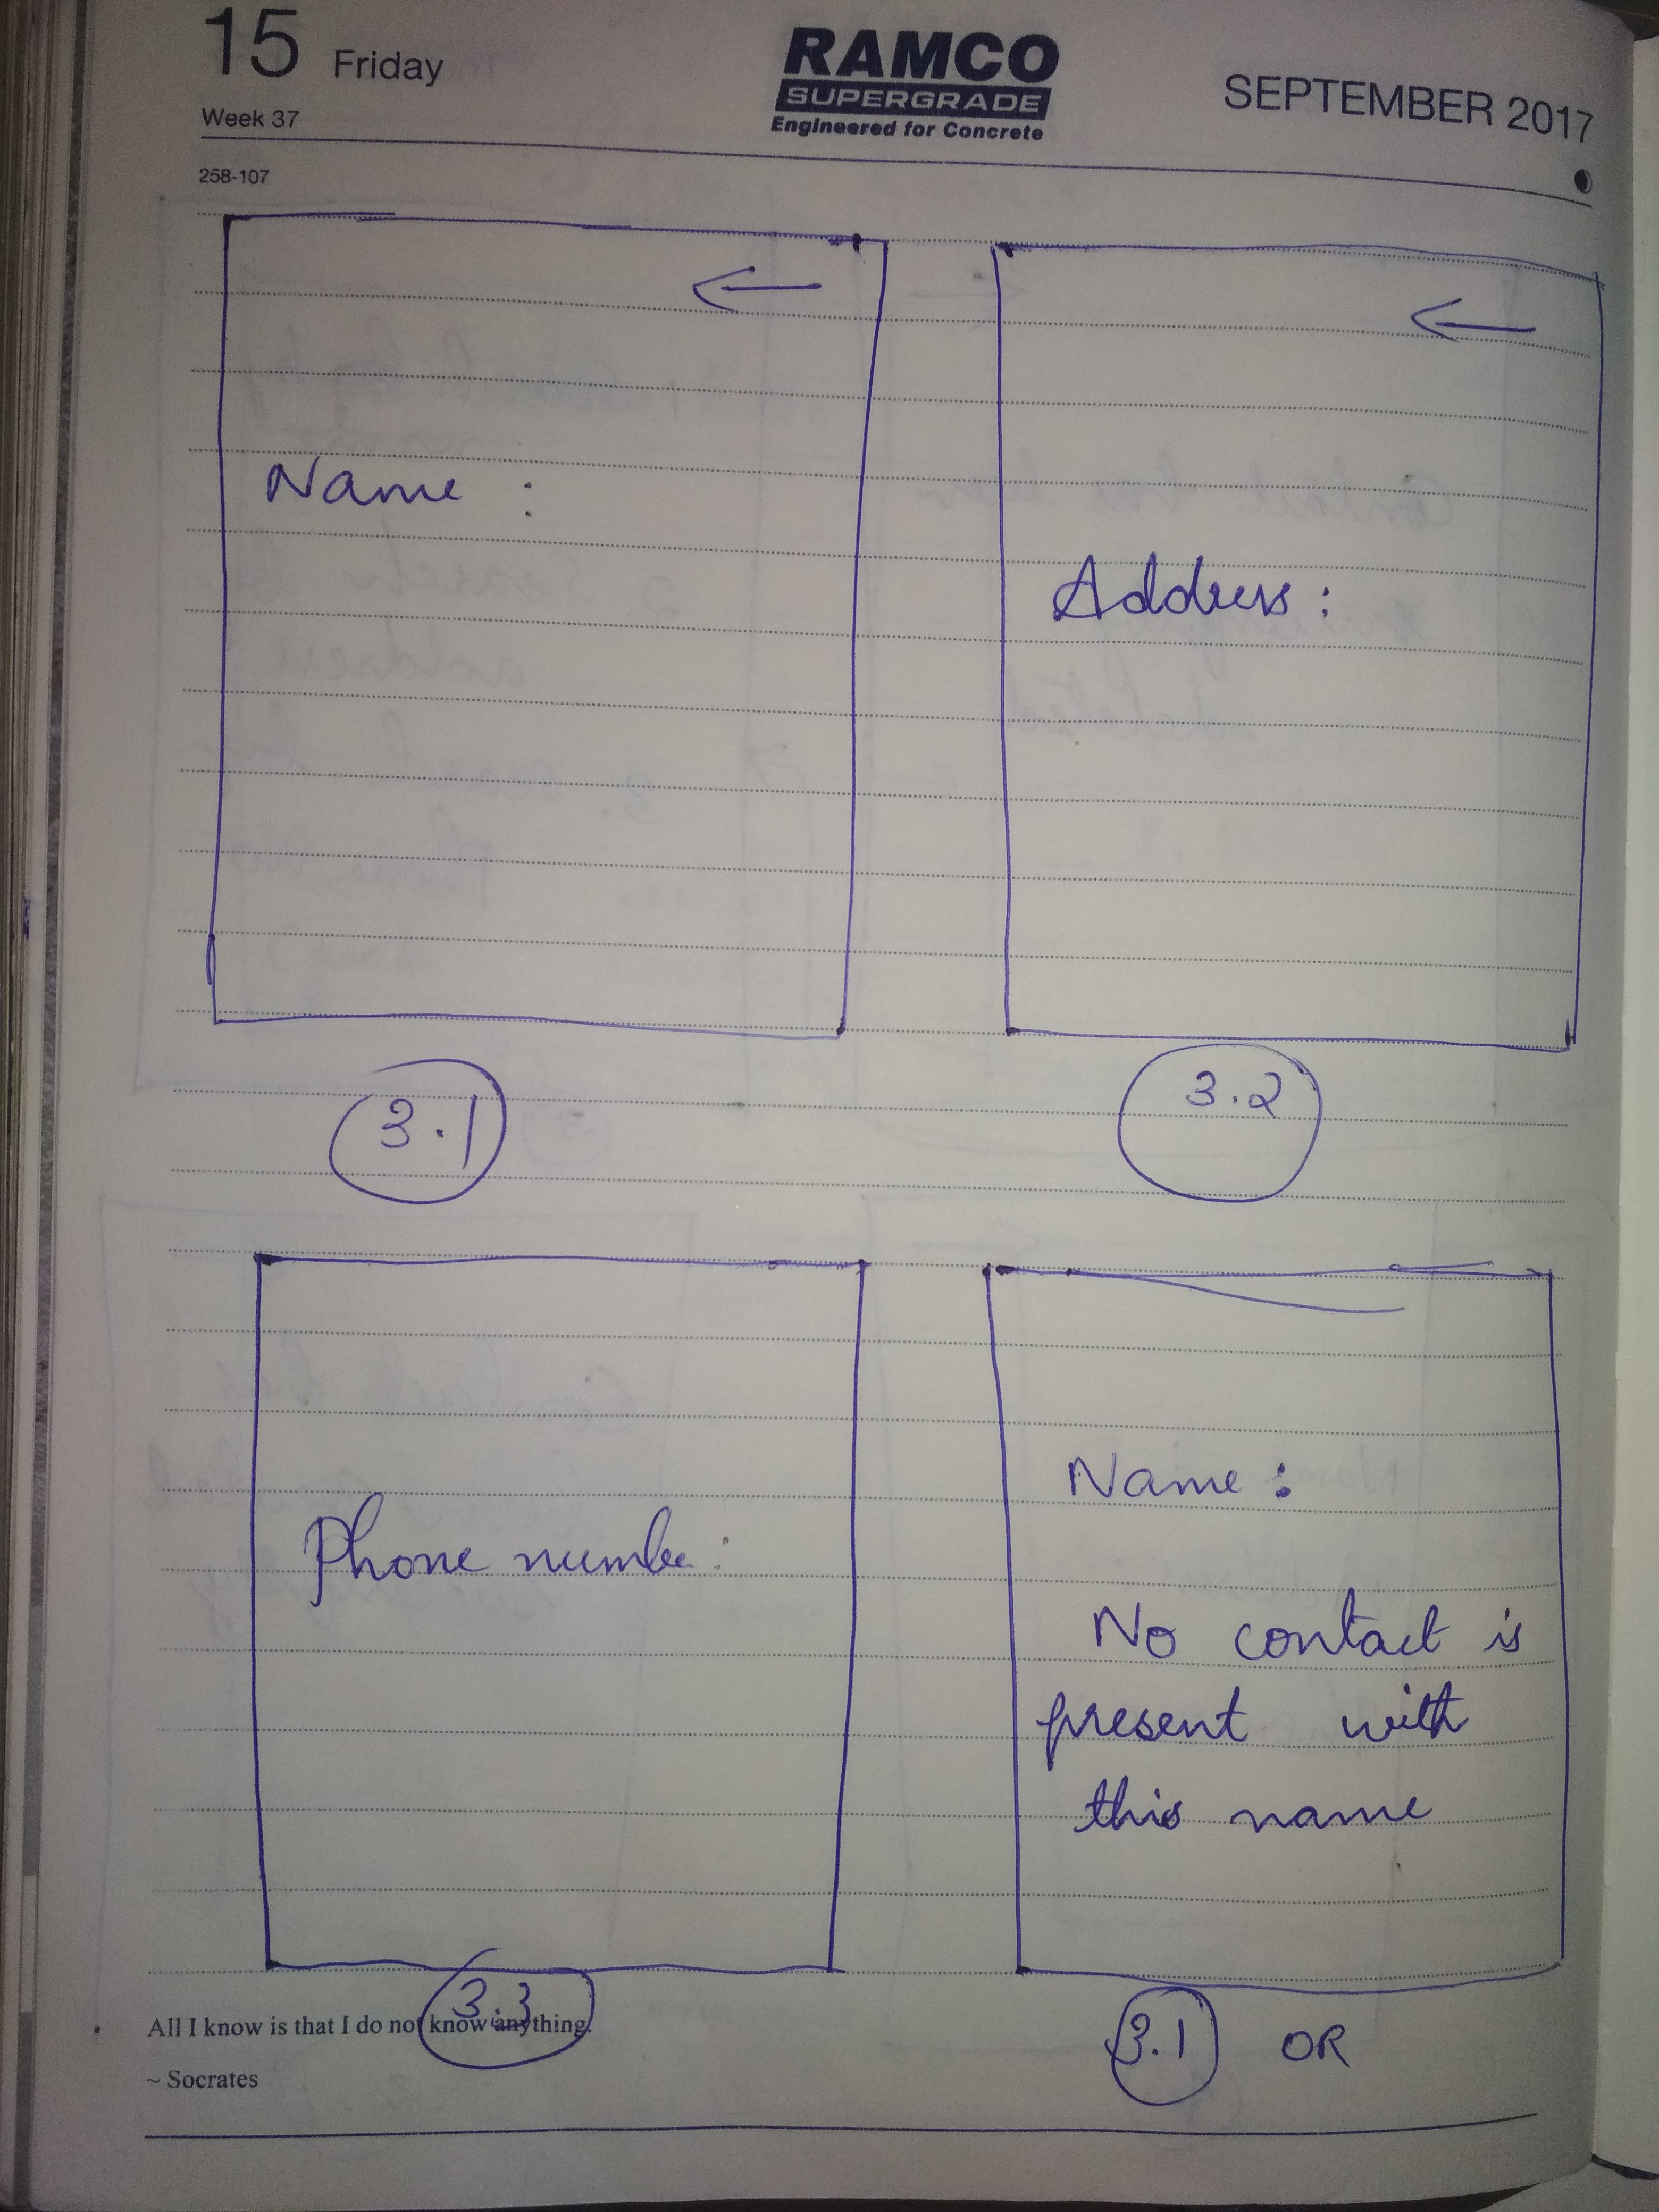 15 Friday
Week 37
RAMCO
SUPERGRADE
Engineered for Concrete
SEPTEMBER 2017
258-107
Name :
Address :
3.1
3.2
Phone numbe :
Name :
No contact is
present with
this name
3.3
3.1 OR
All I know is that I do not know anything.
~ Socrates